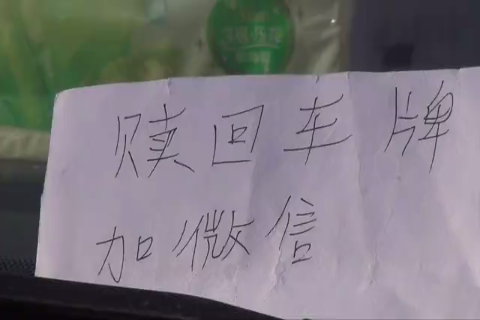 赎回车牌
加微信